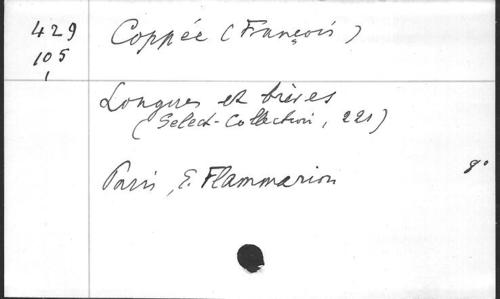 429
105
1
Coppée (François)
Longues et brèves
(Select-Collection, 221)
Paris, E. Flammarion
8°